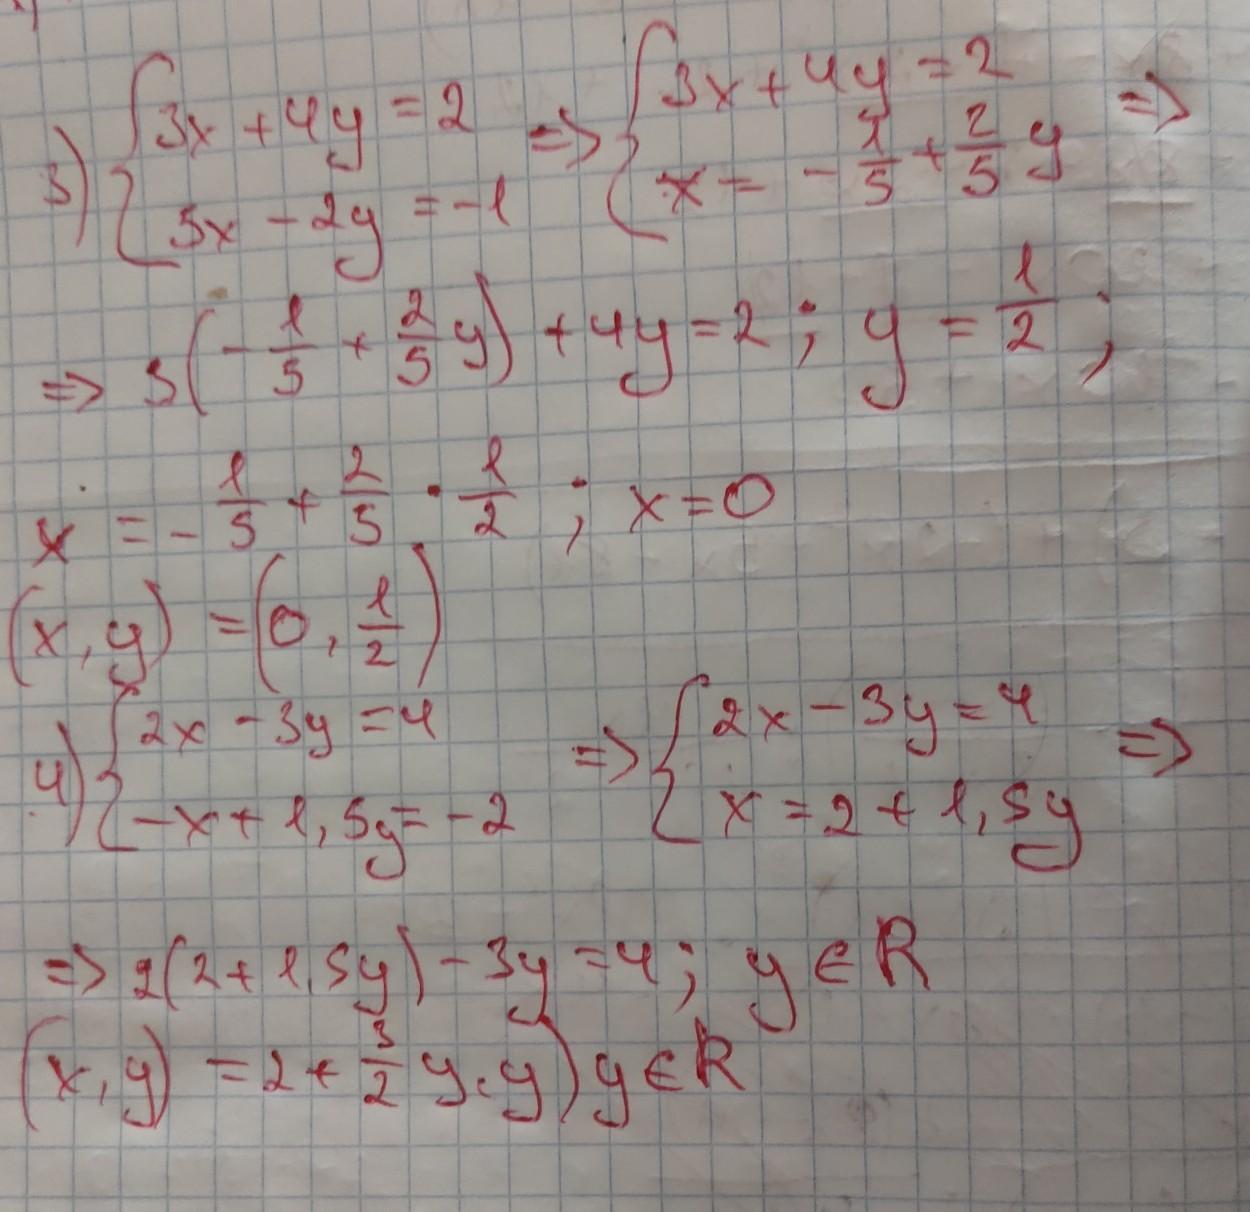 3) { 3x + 4y = 2 => { 3x + 4y = 2 =>
5x - 2y = -1 x = - 1/5 + 2/5 y
=> 3(- 1/5 + 2/5 y) + 4y = 2 ; y = 1/2 ;
x = - 1/5 + 2/5 · 1/2 ; x = 0
(x, y) = (0, 1/2)
4) { 2x - 3y = 4 => { 2x - 3y = 4 =>
-x + 1,5y = -2 x = 2 + 1,5y
=> 2(2 + 1,5y) - 3y = 4 ; y ∈ R
(x, y) = 2 + 3/2 y, y) y ∈ R